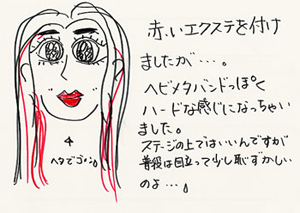 赤いエクステを付け
ましたが…。
ヘビメタバンドっぽく
ハードな感じになっちゃい
ました。
ステージの上ではいいんですが
普段は目立って少し恥ずかしい
のよ…。
ヘタでゴメン。